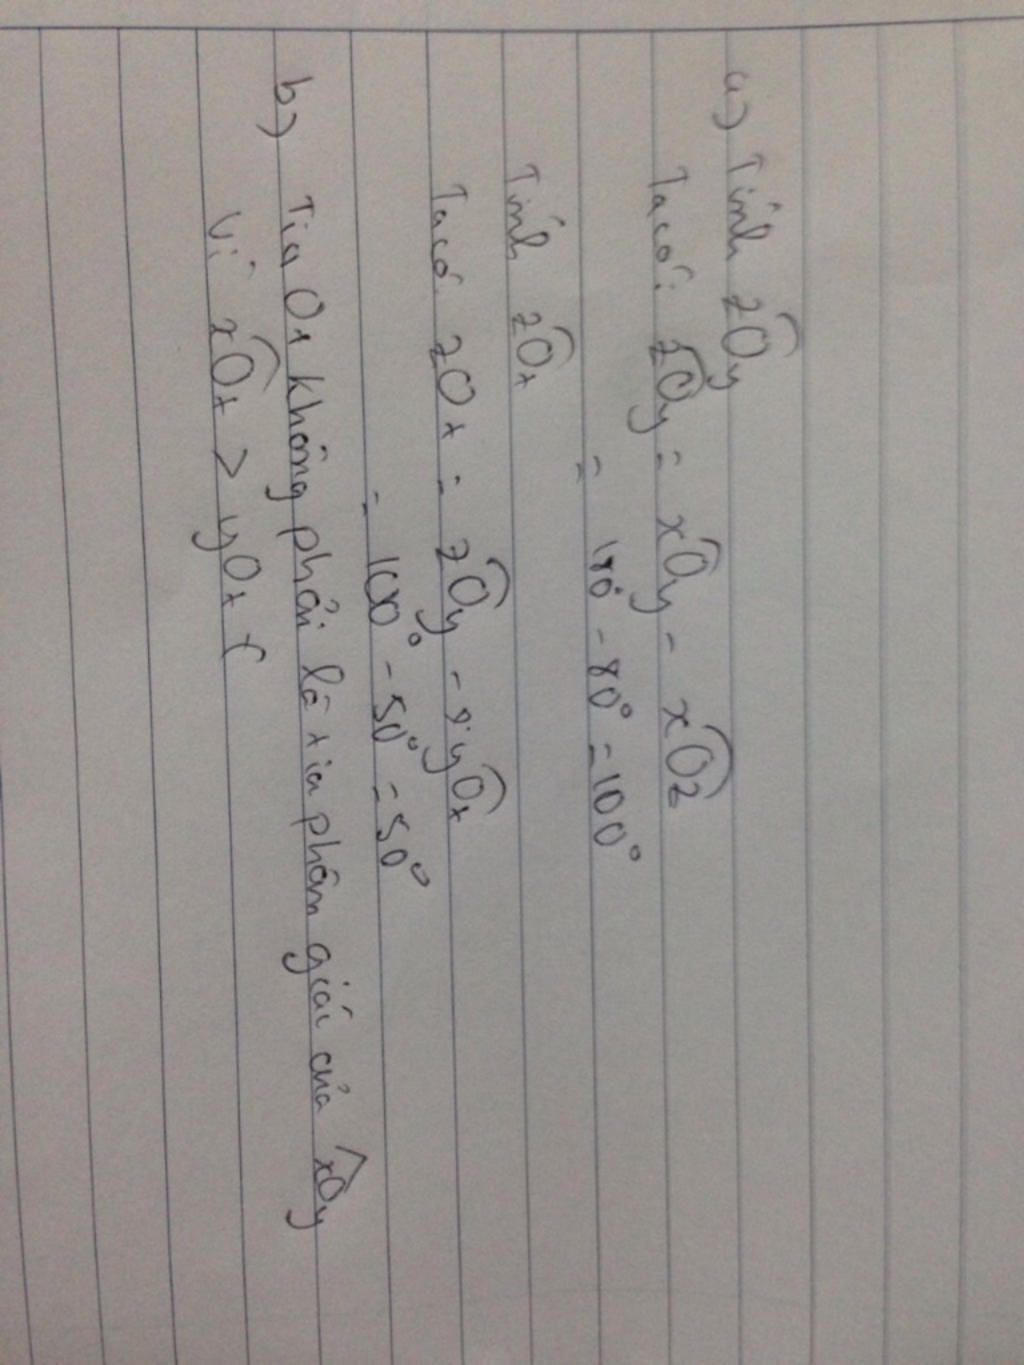 a) Tính zOy
Ta có: zOy = xOy - xOz
= 180° - 80° = 100°
Tính zOt
Ta có: zOt = zOy - yOt
= 100° - 50° = 50°
b) Tia Ot không phải là tia phân giác của xOy
Vì xOt > yOt